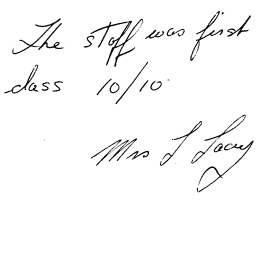 The staff was first
class 10/10
Mrs J. Lacey